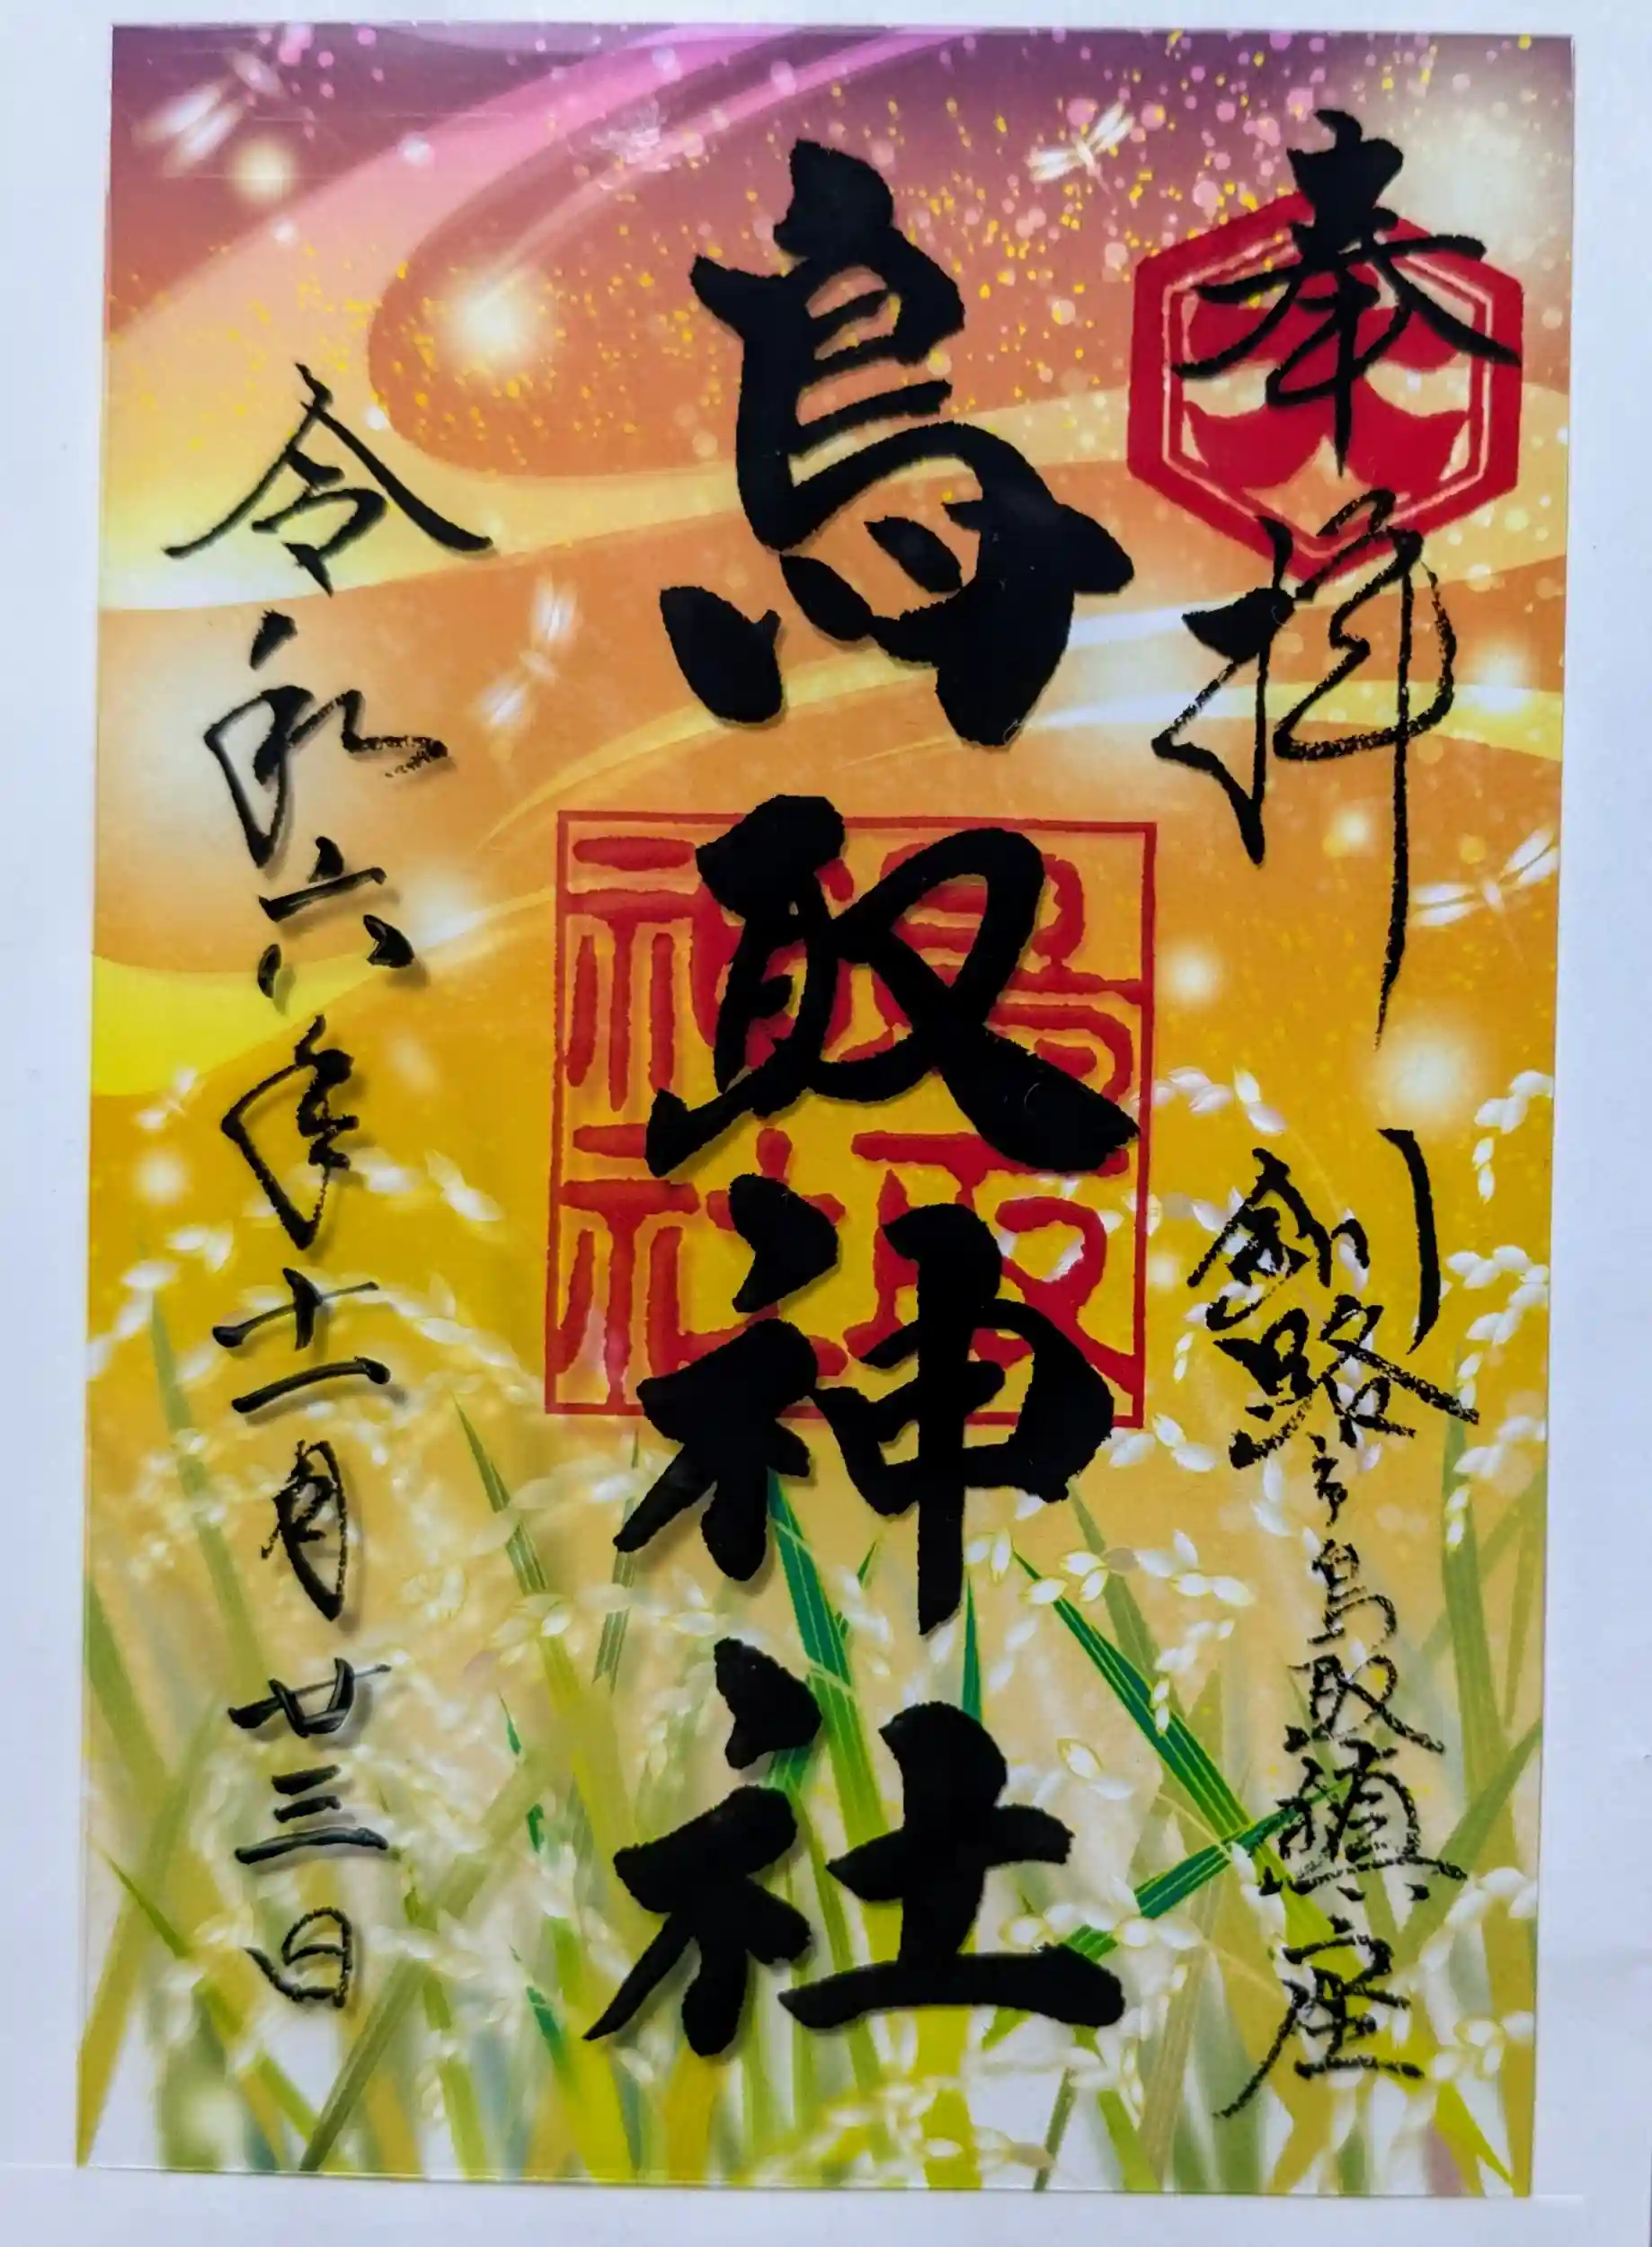 奉拝
釧路市鳥取鎮座
鳥取神社
鳥取神社
令和六年十一月廿三日